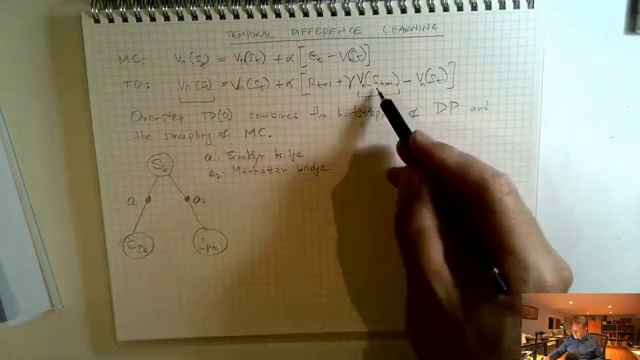 TEMPORAL DIFFERENCE LEARNING
MC: Vπ(St) = Vπ(St) + α [Gt − V(St)]
TD: Vπ(St) = Vπ(St) + α [Rt+1 + γVπ(St+1) − Vπ(St)]
One-step TD(0) combines the of DP and
the sampling of MC.
St a1 Brooklyn bridge
a2 Manhattan bridge
a1 a2
2pm